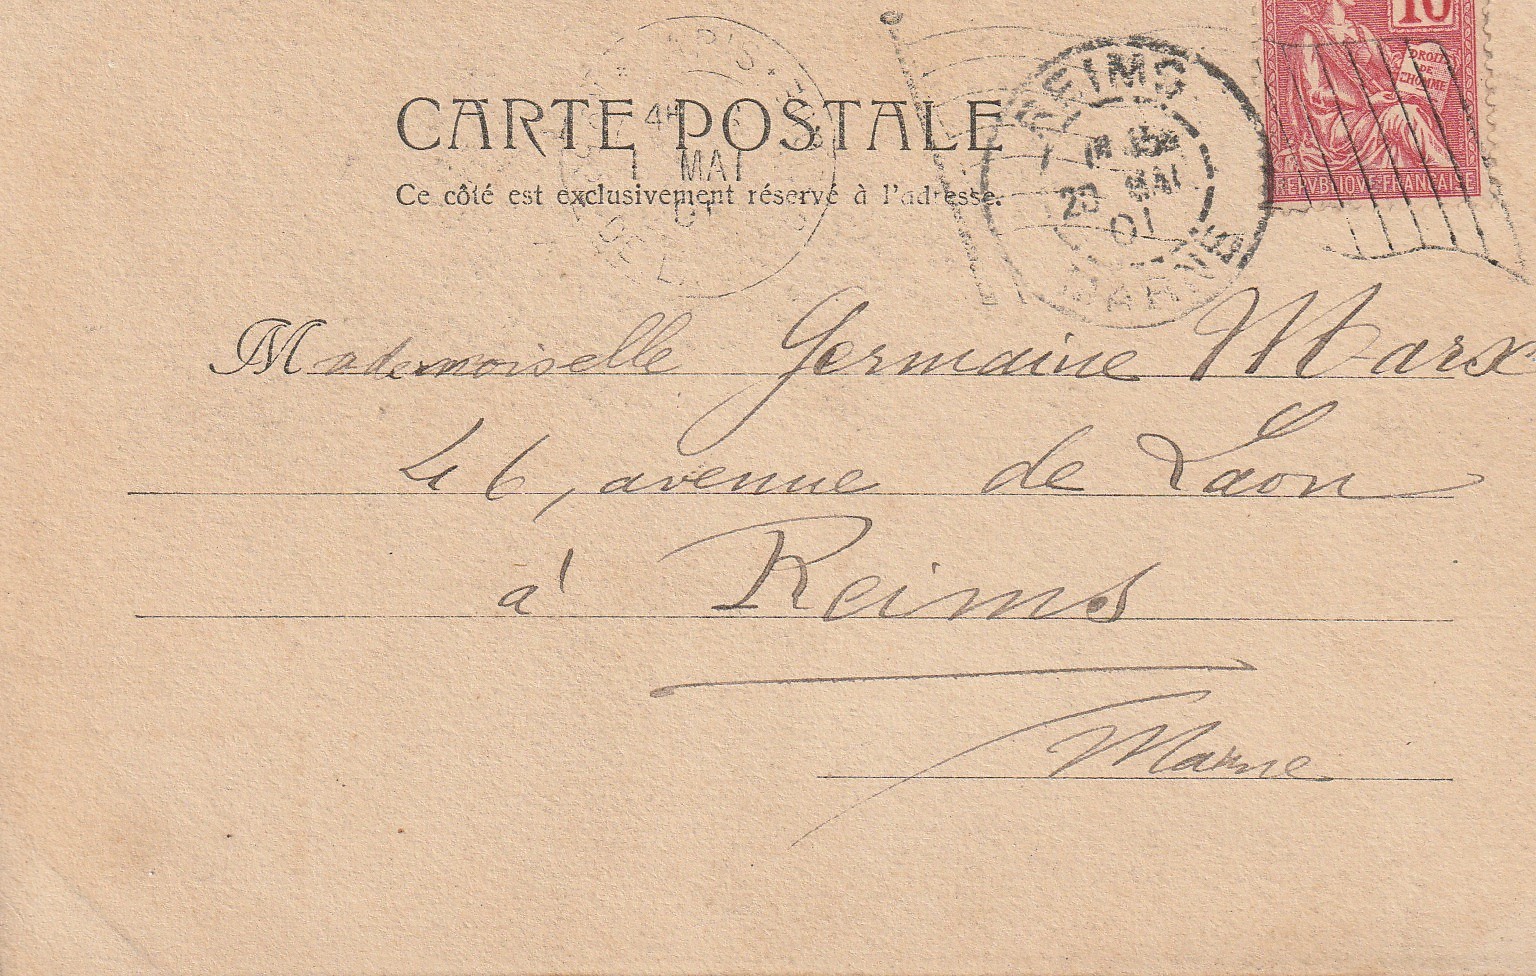 10
DROITS
DE
L'HOMME
REPVBLIQVE FRANCAISE
PARIS
MAI
01
REIMS
20 MAI
01
MARNE
CARTE POSTALE
Ce côté est exclusivement réservé à l'adresse.
Mademoiselle Germaine Marx
46, avenue de Laon
à Reims
Marne